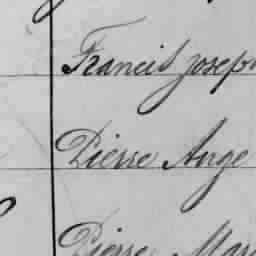 Francis Joseph
Pierre Ange
Pierre Mar